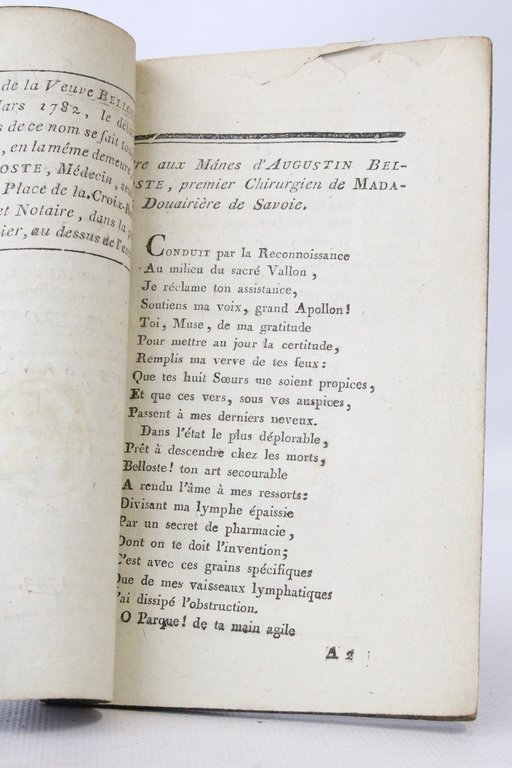 de la Veuve BELLOS
Mars 1782, le dé
s de ce nom se fait tou
, en la même demeure,
OSTE, Médecin,
Place de la Croix-R
et Notaire, dans la
ier, au dessus de l'en
re aux Mânes d'AUGUSTIN BEL-
OSTE, premier Chirurgien de MADA-
Douairière de Savoie.
CONDUIT par la Reconnoissance
Au milieu du sacré Vallon,
Je réclame ton assistance,
Soutiens ma voix, grand Apollon!
Toi, Muse, de ma gratitude
Pour mettre au jour la certitude,
Remplis ma verve de tes feux:
Que tes huit Sœurs me soient propices,
Et que ces vers, sous vos auspices,
Passent à mes derniers neveux.
Dans l'état le plus déplorable,
Prêt à descendre chez les morts,
Belloste! ton art secourable
A rendu l'âme à mes ressorts:
Divisant ma lymphe épaissie
Par un secret de pharmacie,
Dont on te doit l'invention;
C'est avec ces grains spécifiques
Que de mes vaisseaux lymphatiques
J'ai dissipé l'obstruction.
O Parque! de ta main agile
A 2